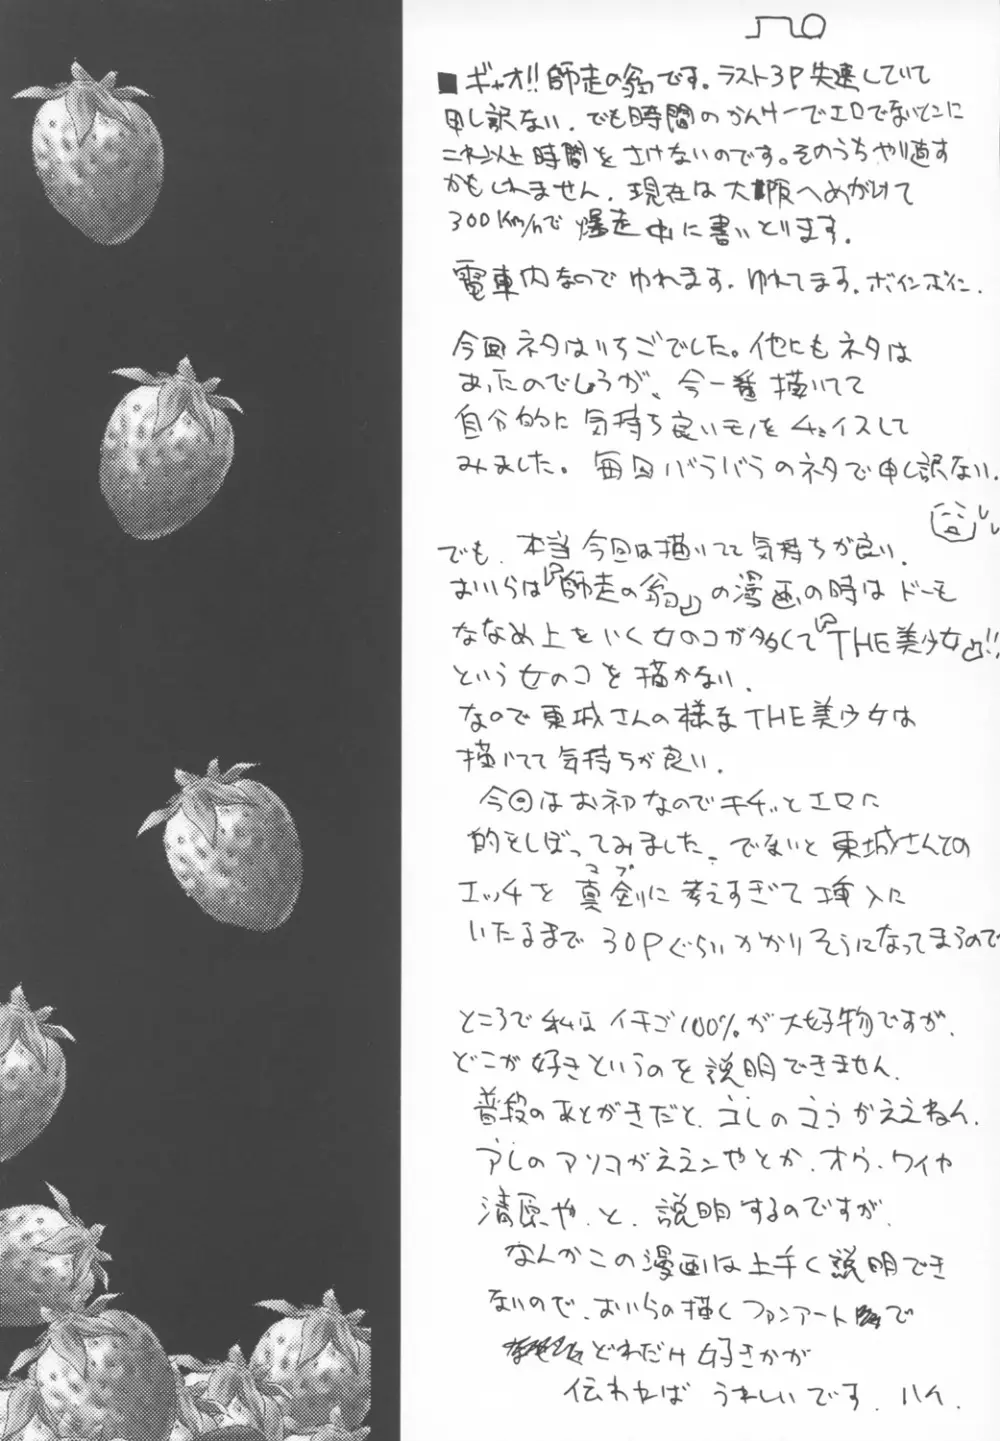 ■ギャオ!!師走の翁です。ラスト3P失速していて
申し訳ない。でも時間のかんけーでエロでないとこに
これ以上時間をさけないのです。そのうちやり直す
かもしれません。現在は大阪へめがけて
300Km/hで爆走中に書いとります。
電車内なのでゆれます。ゆれてます。ボインボイン.
今回ネタはいちごでした。他にもネタは
あったのでしょうが、今一番描いてて
自分的に気持ち良いモノをチョイスして
みました。毎回バラバラのネタで申し訳ない.
でも、本当今回は描いてて気持ちが良い.
おいらは『師走の翁』の漫画の時はドーも
ななめ上をいく女のコが多くて『THE美少女』!!
という女のコを描かない.
なので東城さんの様なTHE美少女は
描いてて気持ちが良い.
今回はお初なのでキチッとエロに
的をしぼってみました。でないと東城さんでの
エッチを真剣にマブ考えすぎて挿入に
いたるまで30Pぐらいかかりそうになってまうので
ところで私はイチゴ100%が大好物ですが、
どこが好きというのを説明できません.
普段のあとがきだと、コレのココがええねん.
アレのアソコがええンやとか、オウ、ワイや
清原や、と、説明するのですが、
なんかこの漫画は上手く説明でき
ないので、おいらの描くファンアートで
どれだけ好きかが
伝われば うれしいです。ハイ.